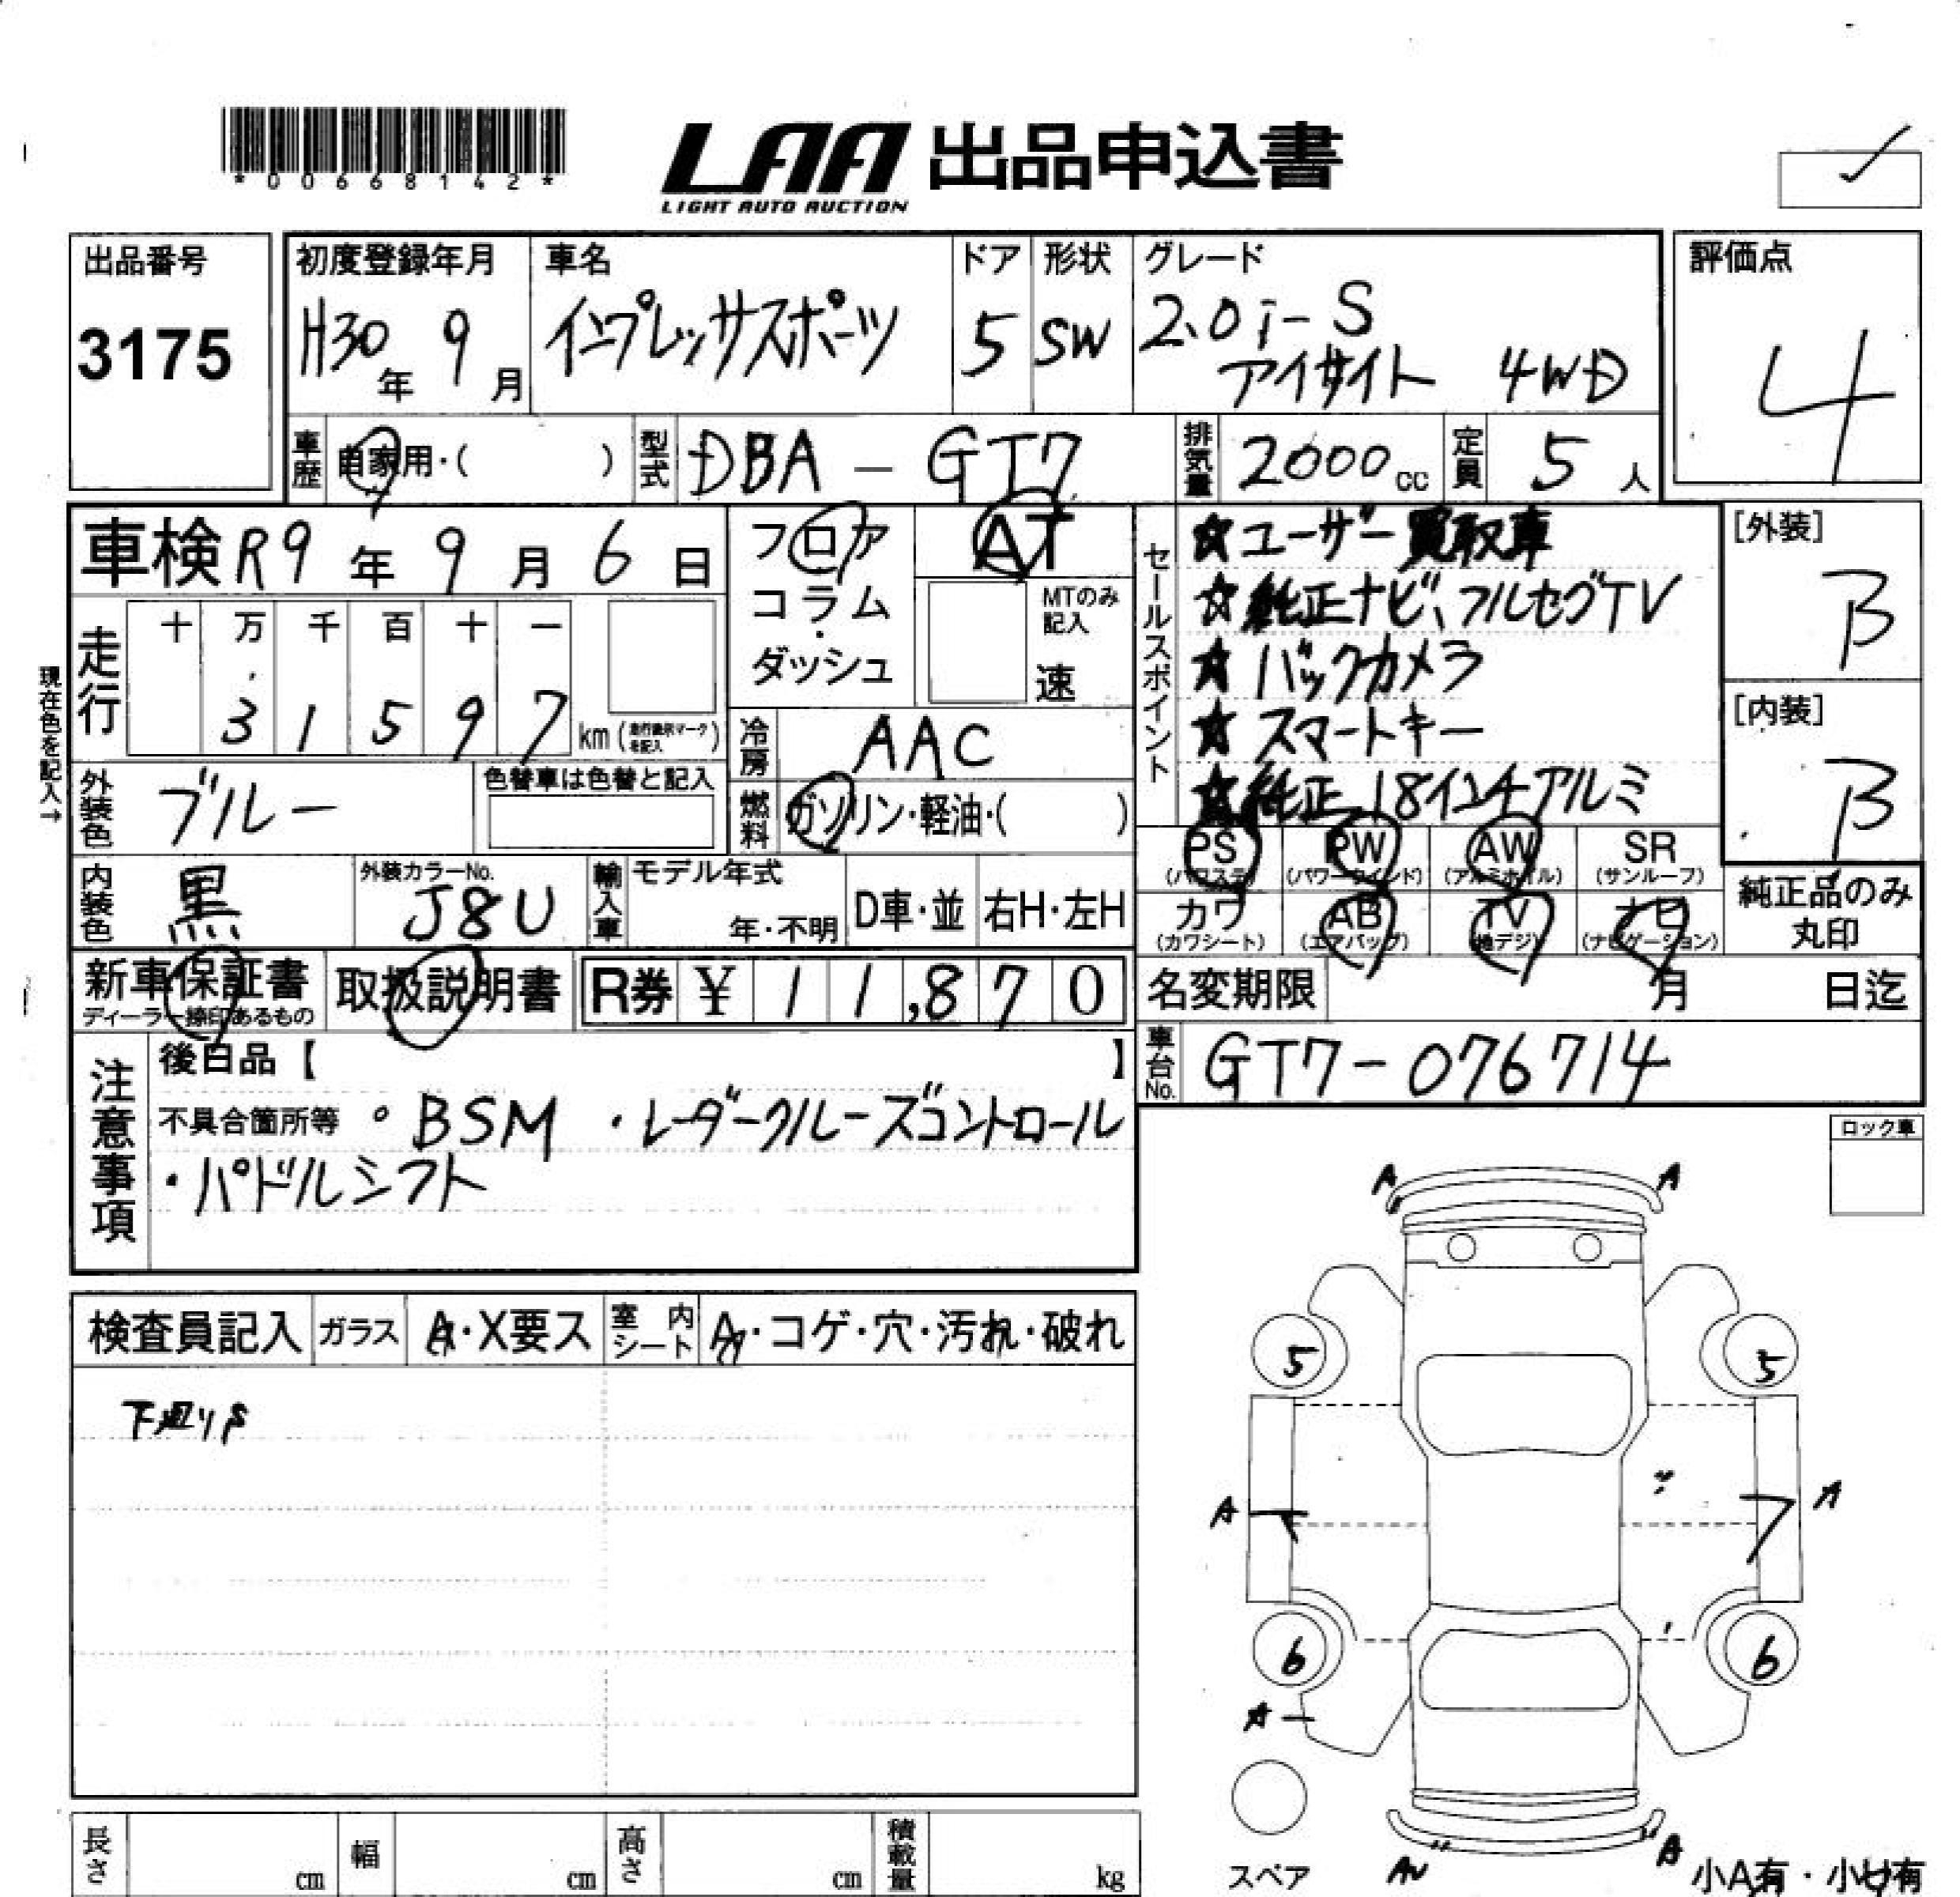 *00668142*
LAA 出品申込書
LIGHT AUTO AUCTION
出品番号
3175
初度登録年月
H30年 9月
車名
インプレッサスポーツ
ドア
5
形状
SW
グレード
2.0i-S
アイサイト 4WD
評価点
4
車歴
自家用・( )
型式
DBA - GT7
排気量
2000cc
定員
5人
車検 R9年 9月 6日
フロア
コラム
・
ダッシュ
AT
MTのみ
記入
速
セールスポイント
☆ユーザー買取車
☆純正ナビ、フルセグTV
☆バックカメラ
☆スマートキー
☆純正18インチアルミ
[外装]
B
[内装]
B
現在色を記入→
走行
十 万 千 百 十 一
3 1 5 9 7 km
冷房
AAC
外装色
ブルー
色替車は色替と記入
燃料
ガソリン・軽油・( )
内装色
黒
外装カラーNo.
J8U
輸入車
モデル年式
年・不明
D車・並
右H・左H
PS
(パワステ)
PW
(パワーウインド)
AW
(アルミホイル)
SR
(サンルーフ)
カワ
(カワシート)
AB
(エアバッグ)
TV
(地デジ)
ナビ
(ナビゲーション)
純正品のみ
丸印
新車保証書
ディーラー捺印あるもの
取扱説明書
R券 ¥ 11,870
名変期限 月 日迄
車台No.
GT7-076714
注意事項
後日品【 】
不具合箇所等 ・BSM ・レーダークルーズコントロール
・パドルシフト
ロック車
検査員記入
ガラス
A・X要ス
室内シート
A・コゲ・穴・汚れ・破れ
下廻りS
A A
5 5
A A
6 6
A
スペア
AU A
小A有・小U有
長さ cm
幅 cm
高さ cm
積載量 kg